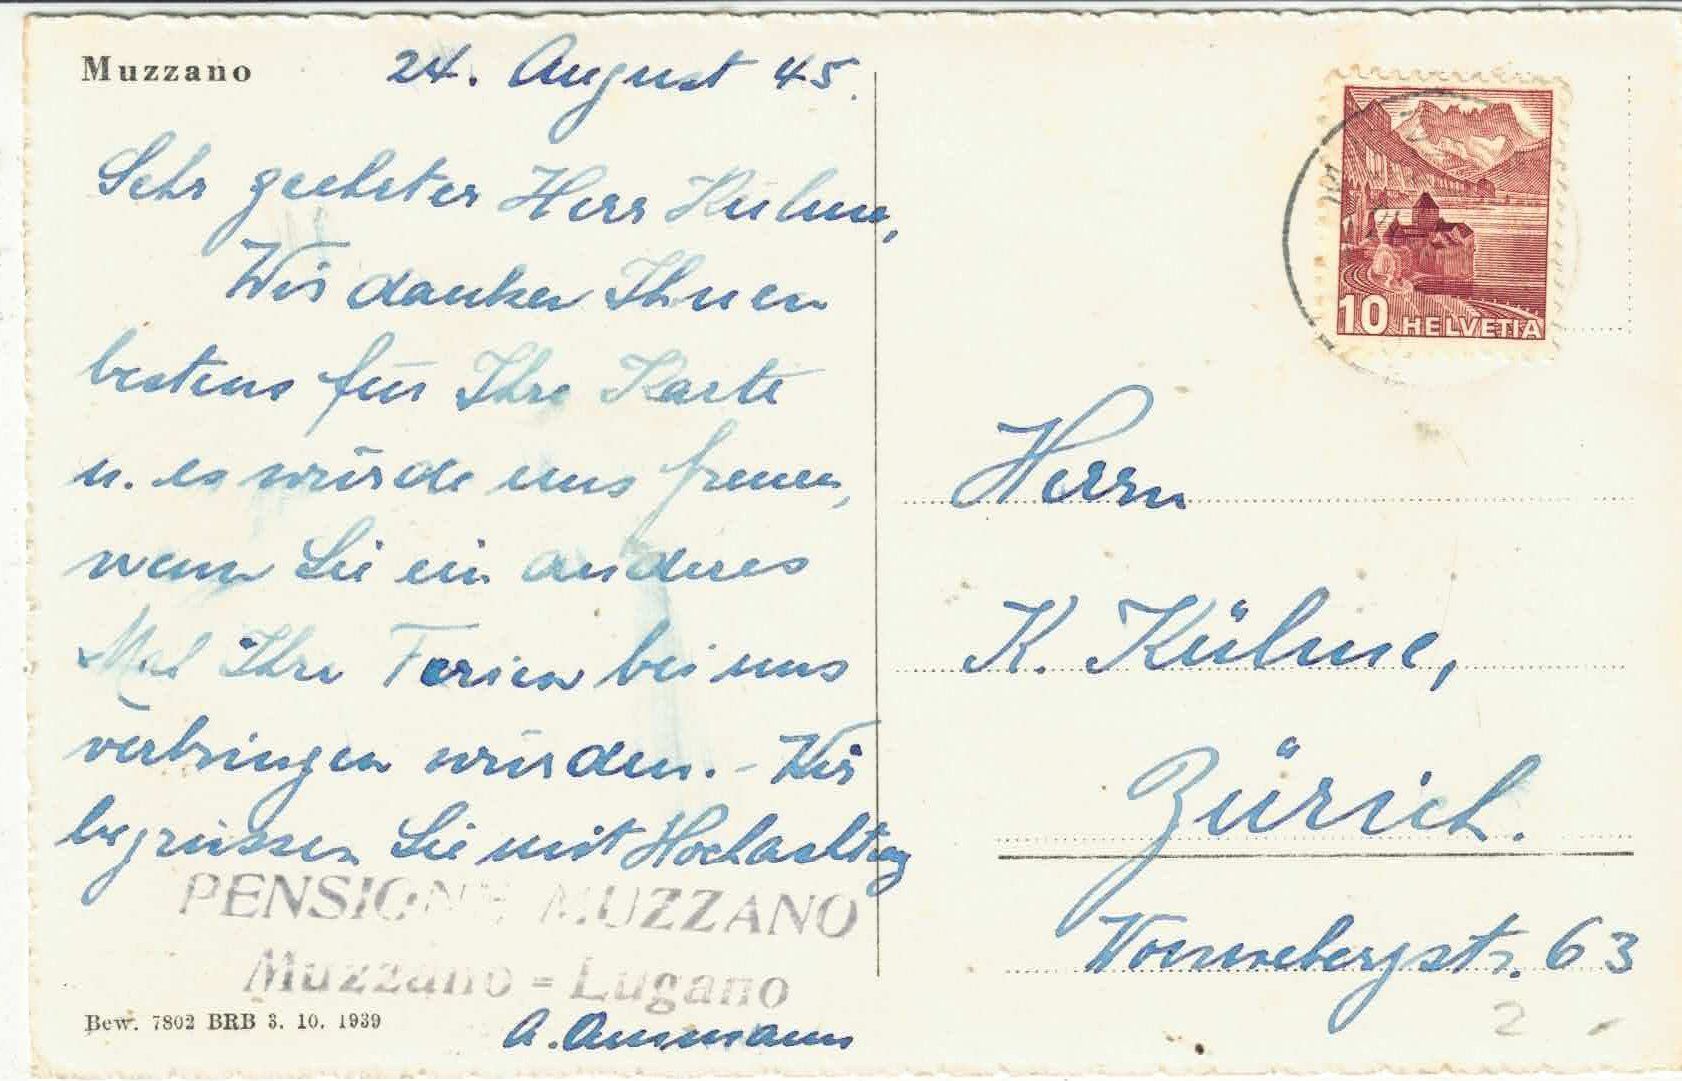 Muzzano
24. August 45.
Sehr geehrter Herr Kühne,
Wir danken Ihnen
bestens für Ihre Karte
u. es würde uns freuen,
wenn Sie ein anderes
Mal Ihre Ferien bei uns
verbringen würden. - Wir
begrüssen Sie mit Hochachtung
PENSIONE MUZZANO
Muzzano = Lugano
A. Ammann
Bew. 7802 BRB 3. 10. 1939
10 HELVETIA
Herrn
K. Kühne,
Zürich.
63
2